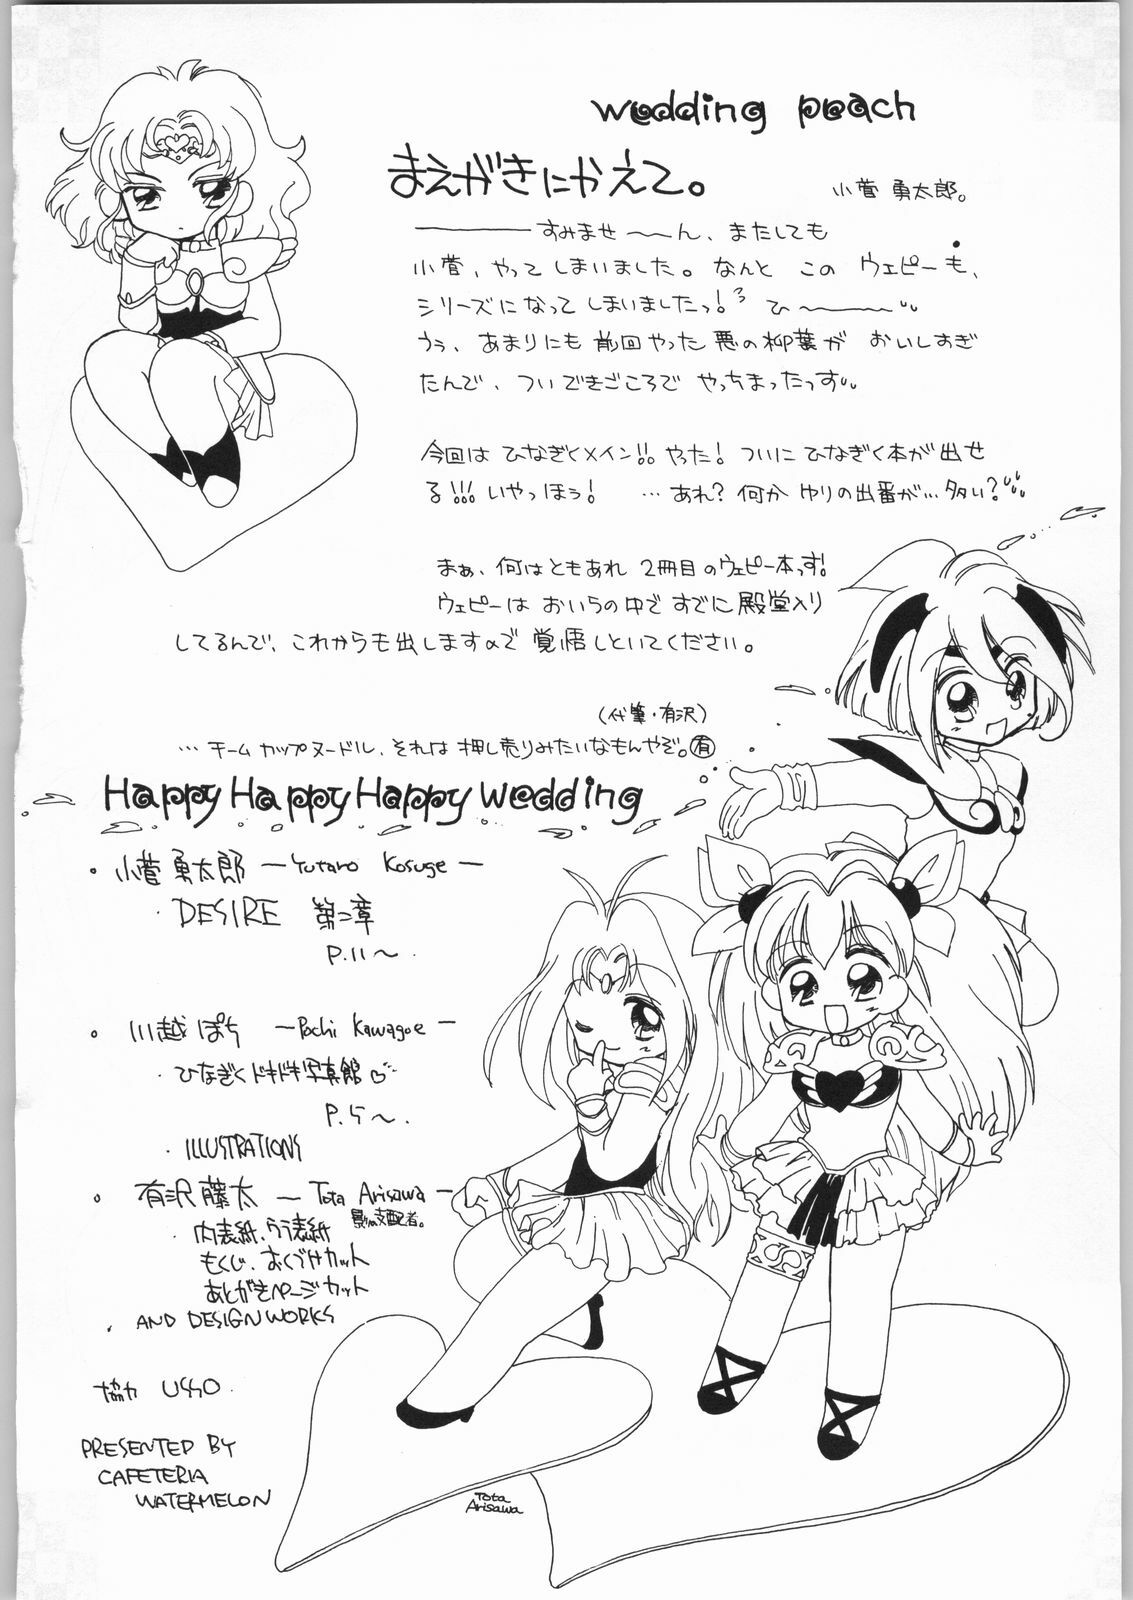 wedding peach
まえがきにかえて。
小菅 勇太郎。
────すみませ〜〜ん、またしても
小菅、やってしまいました。なんと このウェピーも、
シリーズになってしまいましたっ!ひ〜〜〜
うぅ、あまりにも前回やった悪の柳葉がおいしすぎ
たんで、ついできごころで やっちまったっす
今回は ひなぎくメイン!!やった!ついにひなぎく本が出せ
る!!!いやっほぅ! …あれ?何か ゆりの出番が…多い?
まぁ、何はともあれ 2冊目のウェピー本っす!
ウェピーは おいらの中ですでに殿堂入り
してるんで、これからも出しますので 覚悟しといてください。
(代筆・有沢)
…チーム カップヌードル、それは 押し売りみたいなもんやぞ。㊒
Happy Happy Happy wedding
・小菅 勇太郎 ─Yutaro Kosuge─
・DESIRE 第二章
P.11〜
・川越 ぽち ─Pochi Kawagoe─
・ひなぎくドキドキ写真館♡
P.5〜.
・ILLUSTRATIONS
・有沢 藤太 ─Tota Arisawa─
影の支配者。
・内表紙、ウラ表紙
もくじ、おくづけカット
あとがきページカット
・AND DESIGN WORKS
協力 USO
PRESENTED BY
CAFETERIA
WATERMELON
Tota
Arisawa